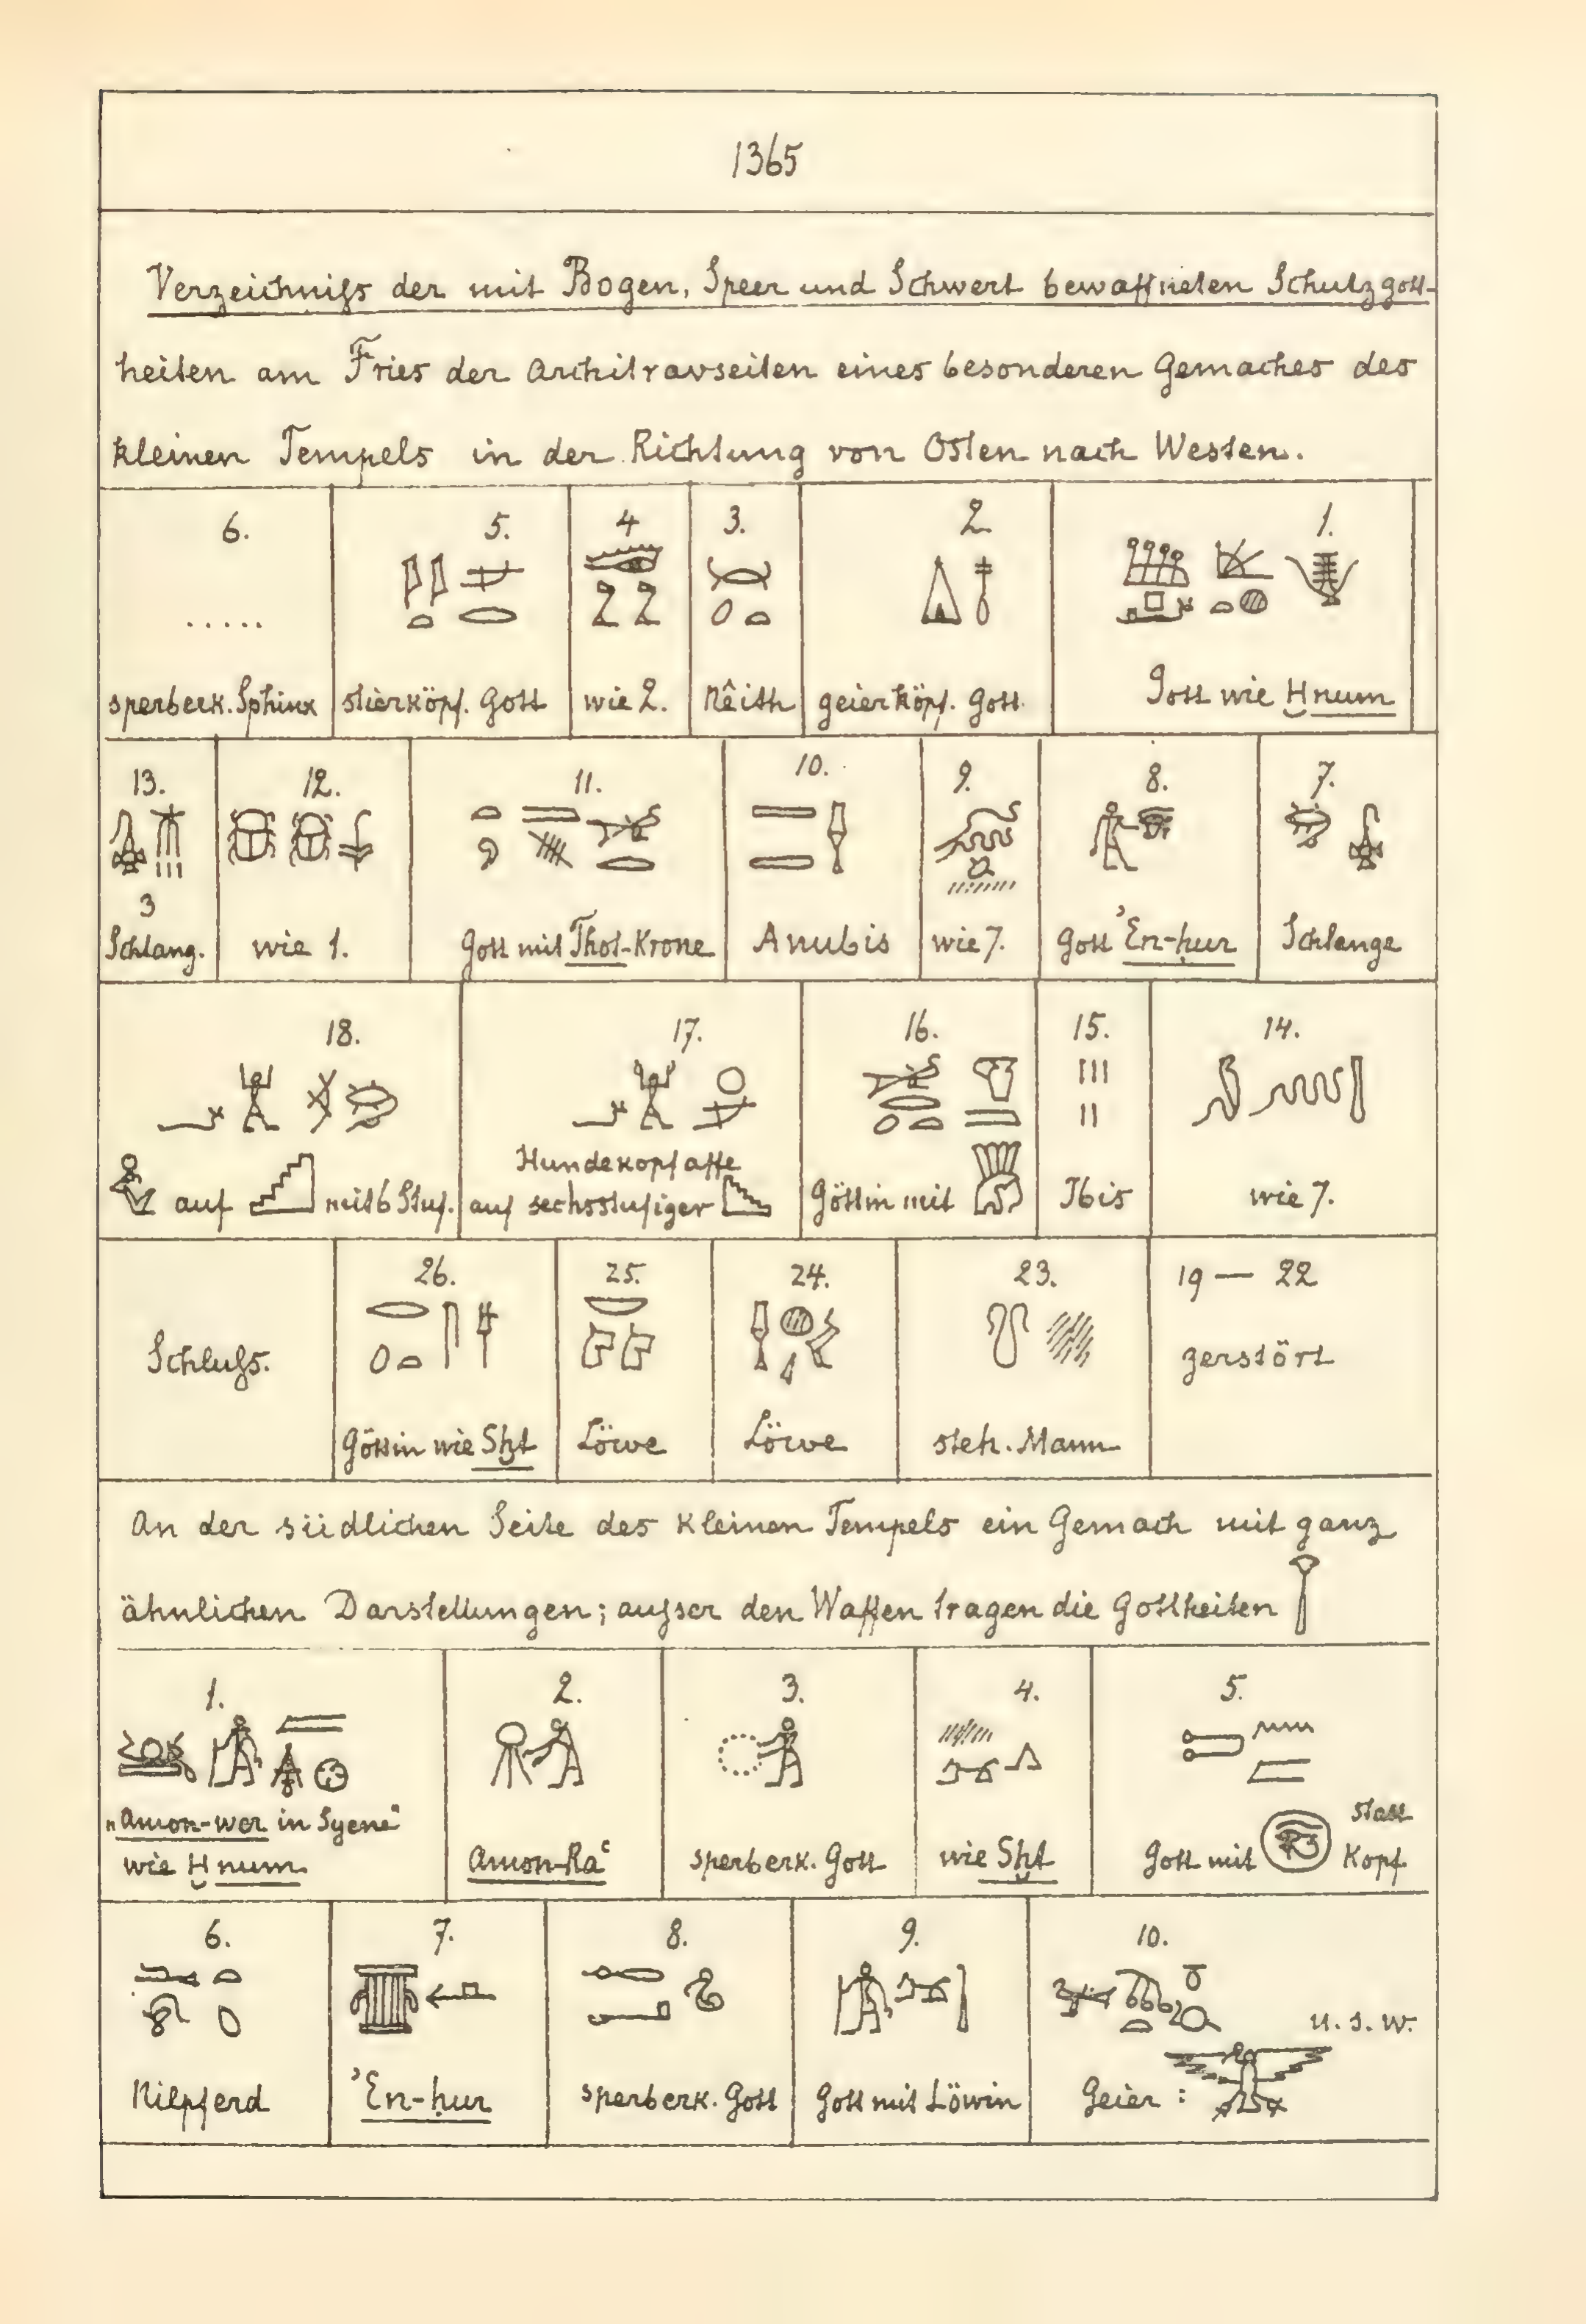 1365
Verzeichniſs der mit Bogen, Speer und Schwert bewaffneten Schutzgott-
heiten am Fries der Architravseiten eines besonderen Gemaches des
kleinen Tempels in der Richtung von Osten nach Westen.
6. 5. 4 3. 2. 1.
.....
sperberk. Sphinx stierköpf. Gott wie 2. Nêith geierköpf. Gott. Gott wie Ḫnum
13. 12. 11. 10. 9. 8. 7.
3
Schlang. wie 1. Gott mit Thot-Krone Anubis wie 7. Gott ’En-ḥur Schlange
18. 17. 16. 15. 14.
Hundekopfaffe
auf mit 6 Stuf. auf sechsstufiger Göttin mit Ibis wie 7.
26. 25. 24. 23. 19 — 22
Schluſs. zerstört
Göttin wie Sḫt Löwe Löwe steh. Mann
An der südlichen Seite des kleinen Tempels ein Gemach mit ganz
ähnlichen Darstellungen; auſser den Waffen tragen die Gottheiten
1. 2. 3. 4. 5.
„Amon-wer in Syene“ statt
wie Ḫnum Amon-Raʿ sperberk. Gott wie Sḫt Gott mit Kopf
6. 7. 8. 9. 10.
u. s. w.
Nilpferd ’En-ḥur sperberk. Gott Gott mit Löwin Geier: